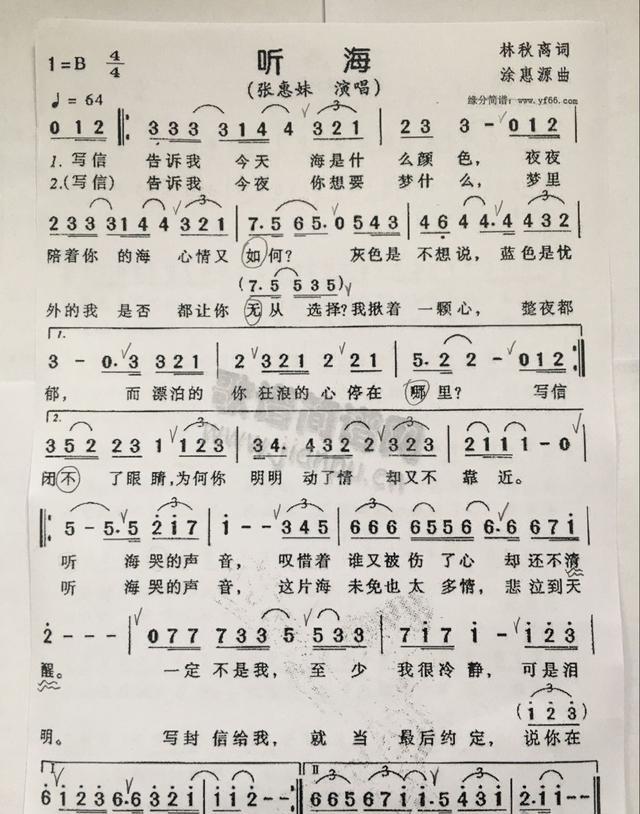 听 海
1=B 4/4
林秋离词
(张惠妹 演唱)
涂惠源曲
♩= 64
缘分简谱: www.yf66.com
0 1 2 ‖: 3 3 3 3 1 4 4 3 2 1 | 2 3 3 - 0 1 2 |
1. 写信 告诉我 今天 海是什 么颜 色, 夜夜
2.(写信) 告诉我 今夜 你想要 梦什 么, 梦里
2 3 3 3 1 4 4 3 2 1 | 7. 5 6 5. 0 5 4 3 | 4 6 4. 4 4 3 2 |
陪着你 的海 心情又 如何? 灰色是 不想说, 蓝色是忧
(7. 5 5 3 5)
外的我 是否 都让你 无从 选择?我揪着 一颗心, 整夜都
1.
3 - 0. 3 3 2 1 | 2 2 3 2 1 2 2 2 1 | 5. 2 2 - 0 1 2 :‖
郁, 而漂泊的 你狂浪的心停在 哪里? 写信
2.
3 5 2 2 3 1 1 2 3 | 3 4. 4 3 2 2 3 2 3 | 2 1 1 1 1 - 0
闭不 了眼睛,为何你 明明 动了情 却又不 靠近。
‖: 5 - 5. 5 2 1 7 | 1 - - 3 4 5 | 6 6 6 6 5 5 6 6. 6 6 7 1 |
听 海哭的声 音, 叹惜着 谁又被伤了心 却还不清
听 海哭的声 音, 这片海 未免也太多情, 悲泣到天
2 - - - | 0 7 7 7 3 3 5 5 3 3 | 7 1 7 1 - 1 2 3 |
醒。 一定 不是我, 至少 我很冷静, 可是泪
(1 2 3)
明。 写封 信给我, 就当 最后约定, 说你在
I II
6 1 2 3 6. 6 3 2 1 | 1 1 2 - - :‖ 6 6 5 6 7 6 7 1 1. 5 4 3 | 2. 1 1 - -